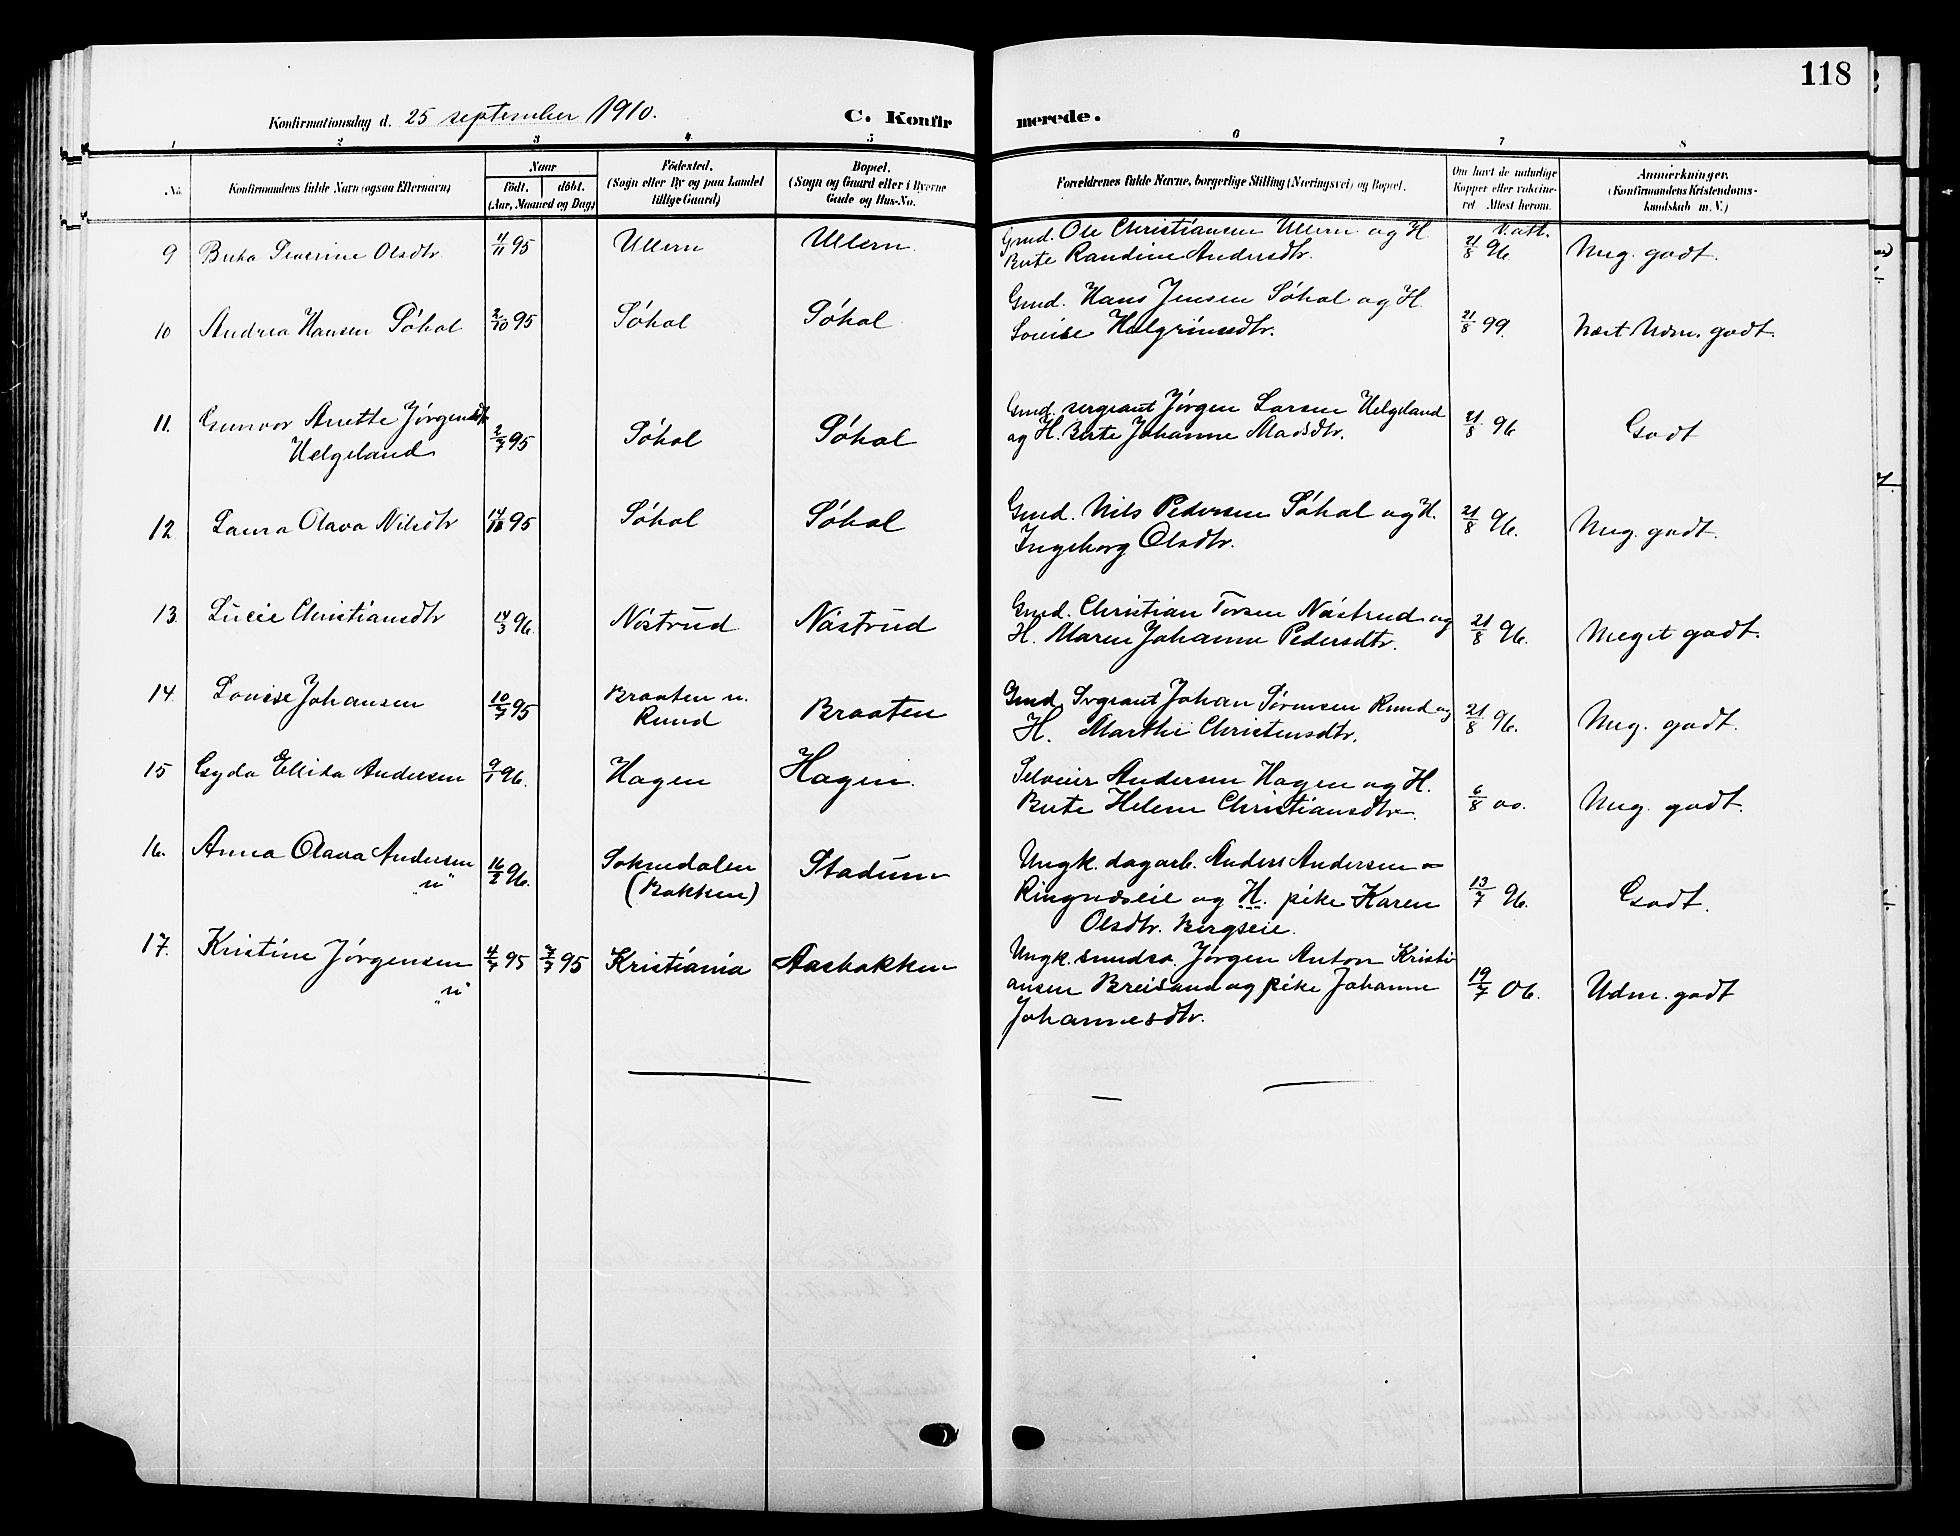 118
Konfirmationsdag d. 25 september 1910. C. Konfir merede.
1 2 3 4 5 6 7 8
No. Konfirmandens fulde Navn (ogsaa Efternavn) Naar født. døbt. (Aar, Maaned og Dag)
Fødested. (Sogn eller By og paa Landet tillige Gaard)
Bopæl. (Sogn og Gaard eller i Byerne Gade og Hus-No.
Forældrenes fulde Navne, borgerlige Stilling (Næringsvei) og Bopæl.
Om havt de naturlige Kopper eller vakcineret. Attest herom.
Anmærkninger. (Konfirmandens Kristendomskundskab m. V.)
9 Berta Severine Olsdtr 11/11 95 Ullern Ullern
Gmd. Ole Christiansen Ullern og H.
Berte Randine Andersdtr. V. att. 21/8 96 Meg. godt.
10 Andrea Hansen Søhol 2/10 95 Søhol Søhol
Gmd. Hans Jensen Søhol og H.
Louise Halgrimsdtr. 21/8 99. Næst Udm. godt.
11. Gunvor Anette Jørgensdtr
Helgeland 2/7 95 Søhol Søhol
Gmd. sergeant Jørgen Larsen Helgeland
og H. Berte Johanne Madsdtr. 21/8 96 Godt
12 Laura Olava Nilsdtr 95 Søhol Søhol
Gmd. Nils Pedersen Søhol og H.
Ingeborg Olsdtr. 21/8 96. Meg. godt.
13. Lucie Christiansdtr 14/3 96. Nöstrud Nöstrud
Gmd. Christian Torsen Nöstrud og
H. Maren Johanne Pedersdtr. 21/8 96. Meget godt.
14. Louise Johansen 10/7 95 Braaten u.
Ruud Braaten
Gmd. Sergeant Johan Sørensen Ruud og
H. Marthe Christensdtr. 21/8 96. Meg. godt.
15 Gyda Elida Andersen 9/1 96. Hagen Hagen.
Selveier Andersen Hagen og H.
Berte Helene Christiansdtr. 6/8 00. Meg. godt.
16. Anna Olava Andersen
"u" 16/2 96. Soknedalen
(Bakken) Stadum
Ungk. dagarb. Anders Andersen
Ringnæseie og H. pike Karen
Olsdtr. Bergseie. 13/7 96. Godt.
17. Kristine Jørgensen
"u" 4/7 95 7/7 95 Kristiania Aasbakken
Ungk. smedsv. Jørgen Anton Kristi
ansen Breisand og pike Johanne
Johannesdtr. 19/7 06. Udm. godt